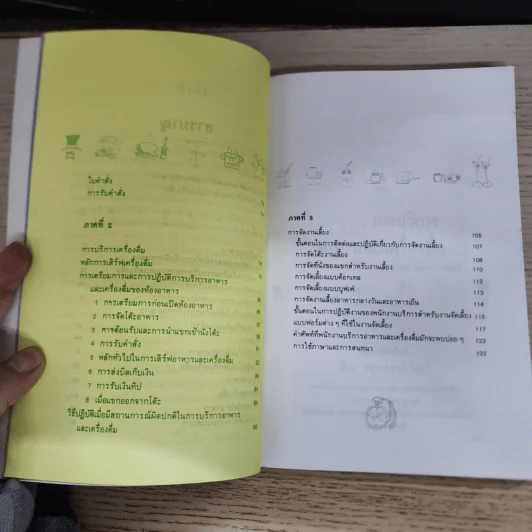 ใบคำสั่ง
การรับคำสั่ง
ภาคที่ 2
การบริการเครื่องดื่ม
หลักการเสิร์ฟเครื่องดื่ม
การเตรียมการและการปฏิบัติการบริการอาหาร
และเครื่องดื่มของห้องอาหาร
1 การเตรียมการก่อนเปิดห้องอาหาร
2 การจัดโต๊ะอาหาร
3 การต้อนรับและการนำแขกเข้านั่งโต๊ะ
4 การรับคำสั่ง
5 หลักทั่วไปในการเสิร์ฟอาหารและเครื่องดื่ม
6 การส่งบิลเก็บเงิน
7 การรับเงินทิป
8 เมื่อแขกออกจากโต๊ะ
วิธีปฏิบัติเมื่อมีสถานการณ์ผิดปกติในการบริการอาหาร
และเครื่องดื่ม
ภาคที่ 3
การจัดงานเลี้ยง 105
ขั้นตอนในการติดต่อและปฏิบัติเกี่ยวกับการจัดงานเลี้ยง 107
การจัดโต๊ะงานเลี้ยง 108
การจัดที่นั่งของแขกสำหรับงานเลี้ยง 110
การจัดเลี้ยงแบบค็อกเทล 112
การจัดเลี้ยงแบบบุฟเฟ่ 113
การจัดงานเลี้ยงอาหารกลางวันและอาหารเย็น 114
ขั้นตอนในการปฏิบัติงานของพนักงานบริการสำหรับงานจัดเลี้ยง 115
แบบฟอร์มต่าง ๆ ที่ใช้ในงานจัดเลี้ยง 117
คำศัพท์ที่พนักงานบริการอาหารและเครื่องดื่มมักจะพบบ่อย ๆ 122
การใช้ภาษาและการสนทนา 133